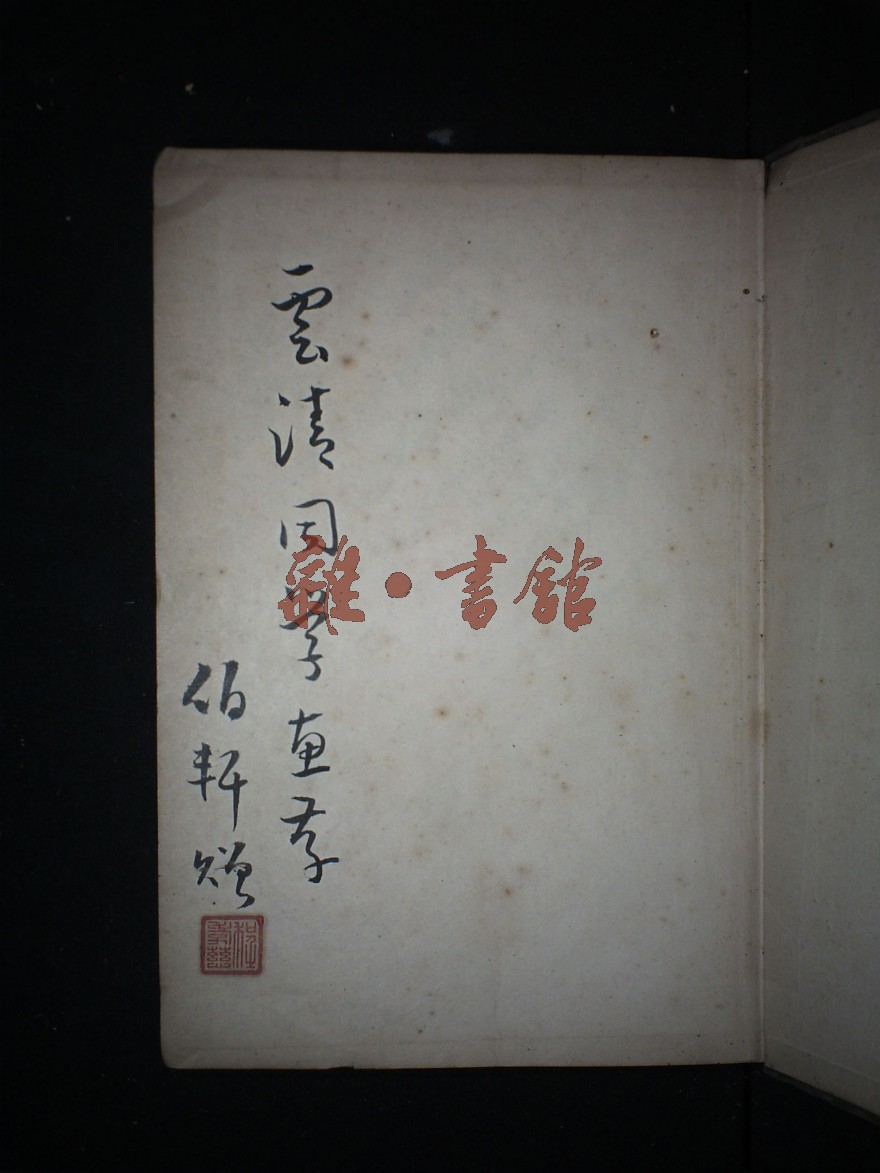 雲清同學惠存
伯軒贈
雜·書館